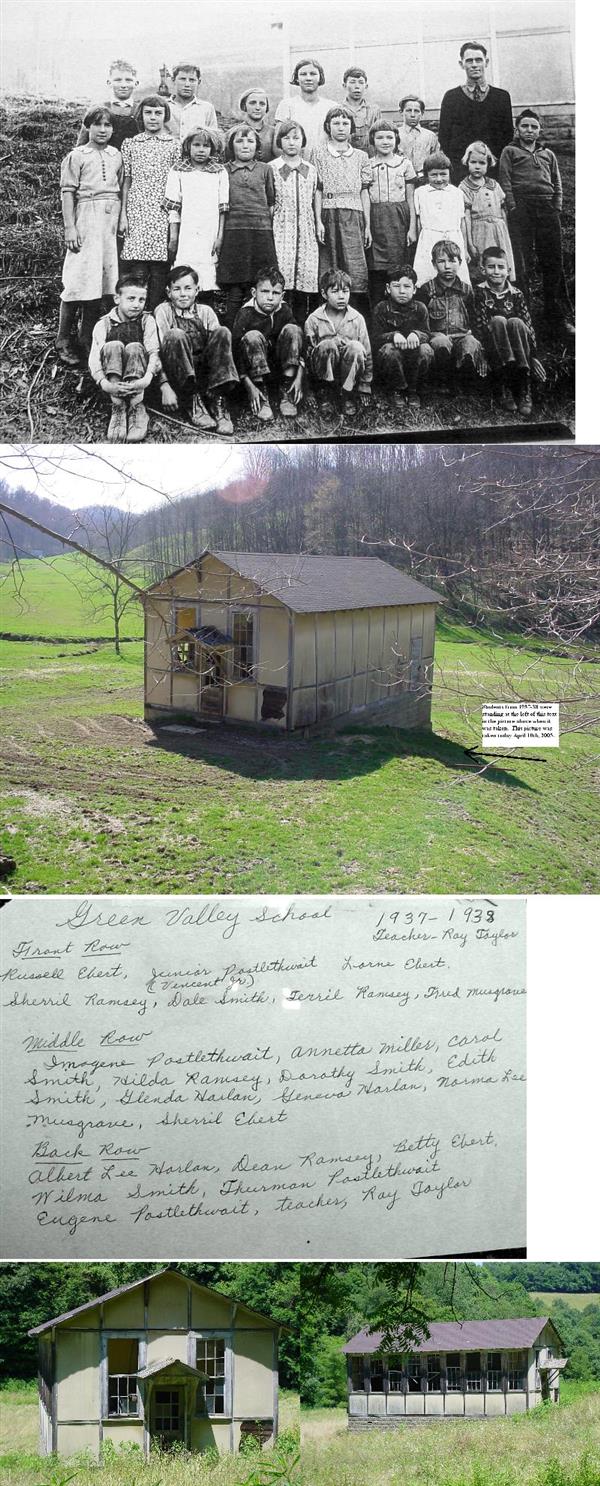 Students from 1937-38 were
standing at the left of this text
in the picture above when it
was taken. This picture was
taken today April 10th, 2005.
Green Valley School
1937-1938
Teacher-Ray Taylor
Front Row
Russell Ebert, Junior Postlethwait Lorne Ebert.
(Vincent Jr.)
Sherril Ramsey, Dale Smith, Terril Ramsey, Fred Musgrave
Middle Row
Imogene Postlethwait, Annetta Miller, Carol
Smith, Hilda Ramsey, Dorothy Smith, Edith
Smith, Glenda Harlan, Geneva Harlan, Norma Lee
Musgrave, Sherril Ebert
Back Row
Albert Lee Harlan, Dean Ramsey, Betty Ebert,
Wilma Smith, Thurman Postlethwait
Eugene Postlethwait, teacher, Ray Taylor